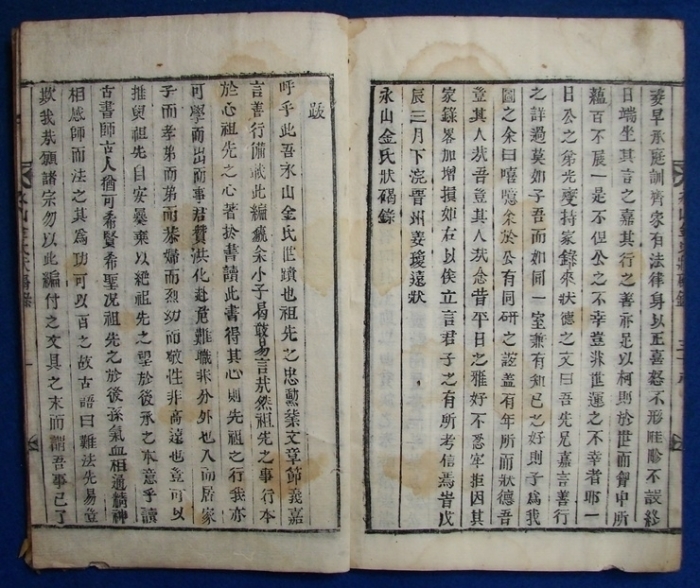 蚤早承庭訓齊家有法律身以正喜怒不形畦畛不設終
日端坐其言之嘉其行之善亦足以柯則於世而胷中所
蘊百不展一是不但公之不幸豈非世運之不幸者耶一
日公之弟光燮持家錄來狀德之文曰吾先兄嘉言善行
之詳過莫如子吾而如同一室兼有知己之好則子爲我
圖之余曰噫噫余於公有同研之誼蓋有年所而狀德吾
豈其人㢤吾豈其人㢤念昔平日之雅好不悉牢拒因其
家錄畧加增損如右以俟立言君子之有所考信焉昔戊
辰三月下浣晋州姜瓊遠狀
永山金氏狀碣錄
跋
呼乎此吾永山金氏世蹟也祖先之忠勳業文章節義嘉
言善行備載此編龥余小子曷敢易言㢤然祖先之事行本
於心祖先之心著扵書讀此書得其心則先祖之行我亦
可學而出而事君贊洪化赴危難職非分外也入而居家
子而孝弟而第而恭婦而烈幼而敬性非高遠也豈可以
推與祖先自安暴棄以絕祖先之望於後承之本意乎讀
古書師古人猶可希賢希聖况祖先之於後孫氣血相通精神
相感師而法之其爲功可以百之故古語曰難法先易豈
欺我㢤願諸宗勿以此編付之文具之末而謂吾事已了